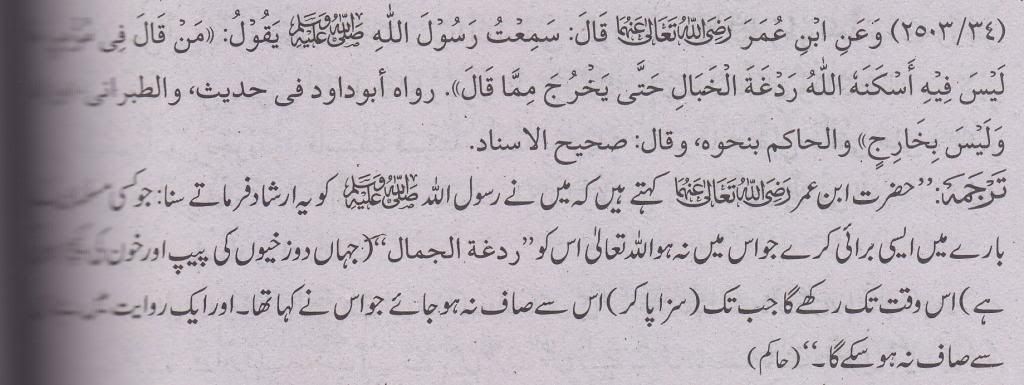 (٢٥٠٣/٣٤) وَعَنِ ابْنِ عُمَرَ رَضِيَ اللهُ تَعَالَى عَنْهُمَا قَالَ: سَمِعْتُ رَسُوْلَ اللهِ صَلَّى اللهُ عَلَيْهِ وَسَلَّمَ يَقُوْلُ: «مَنْ قَالَ فِي
لَيْسَ فِيْهِ أَسْكَنَهُ اللهُ رَدْغَةَ الْخَبَالِ حَتَّى يَخْرُجَ مِمَّا قَالَ». رواه أبوداود فى حديث، والطبرانى
وَلَيْسَ بِخَارِجٍ» والحاكم بنحوه، وقال: صحيح الاسناد.
تَرْجَمَہ: ’’حضرت ابن عمر رَضِيَ اللهُ تَعَالَى عَنْهُمَا کہتے ہیں کہ میں نے رسول اللہ صَلَّى اللهُ عَلَيْهِ وَسَلَّمَ کو یہ ارشاد فرماتے سنا: جو کسی
بارے میں ایسی برائی کرے جو اس میں نہ ہو اللہ تعالیٰ اس کو ’’ردغة الجمال‘‘ (جہاں دوزخیوں کی پیپ اور خون
ہے) اس وقت تک رکھے گا جب تک (سزا پا کر) اس سے صاف نہ ہو جائے جو اس نے کہا تھا۔ اور ایک روایت
سے صاف نہ ہو سکے گا۔‘‘ (حاکم)